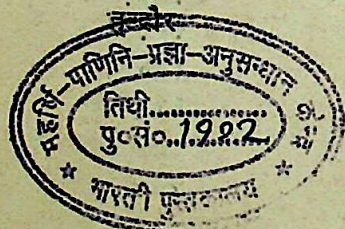 इन्दौर
महर्षि-पाणिनि-प्रज्ञा-अनुसन्धान
तिथी..................
पु०सं०. 1982
★ भारती पुस्तकालय ★